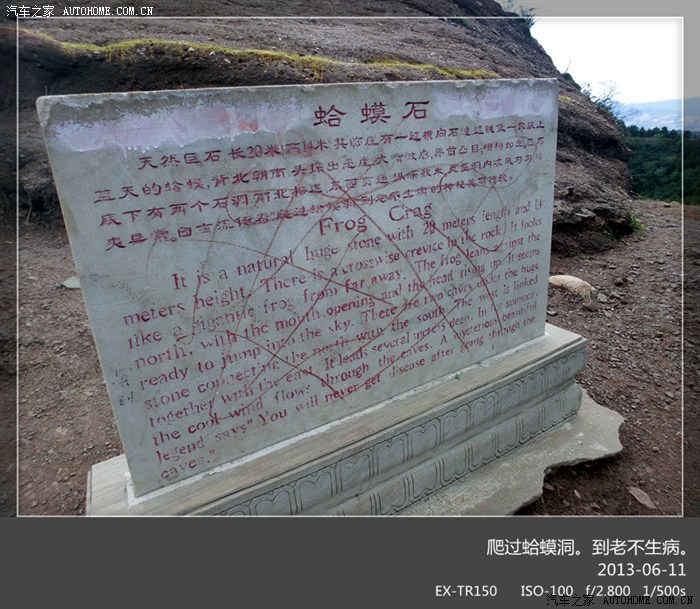 汽车之家 AUTOHOME.COM.CN
蛤蟆石
天然巨石,长20米,高14米,其临崖有一处横向石缝,
蓝天的蛤蟆,背北朝南,头探出
底下有两个石洞,南北相通,东西贯通,纵深数米
炎暑寒。自古流传着"爬过蛤蟆洞,到老不生病"的神秘美丽传统。
Frog Crag
It is a natural huge stone with 20 meters length and 14
meters height. There is a crosswise crevice in the rock. It looks
like a gigantic frog from far away. The frog leans against the
north, with the mouth opening and the head rising up. It seems
ready to jump into the sky. There are two caves under the huge
stone connecting the north with the south. The west is linked
together with the east. It leads several meters deep. In the summer,
the cool wind flows through the caves. A mysterious beautiful
legend says"You will never get disease after going through the
caves."
爬过蛤蟆洞。到老不生病。
2013-06-11
EX-TR150 ISO-100 f/2.800 1/500s
汽车之家 AUTOHOME.COM.CN